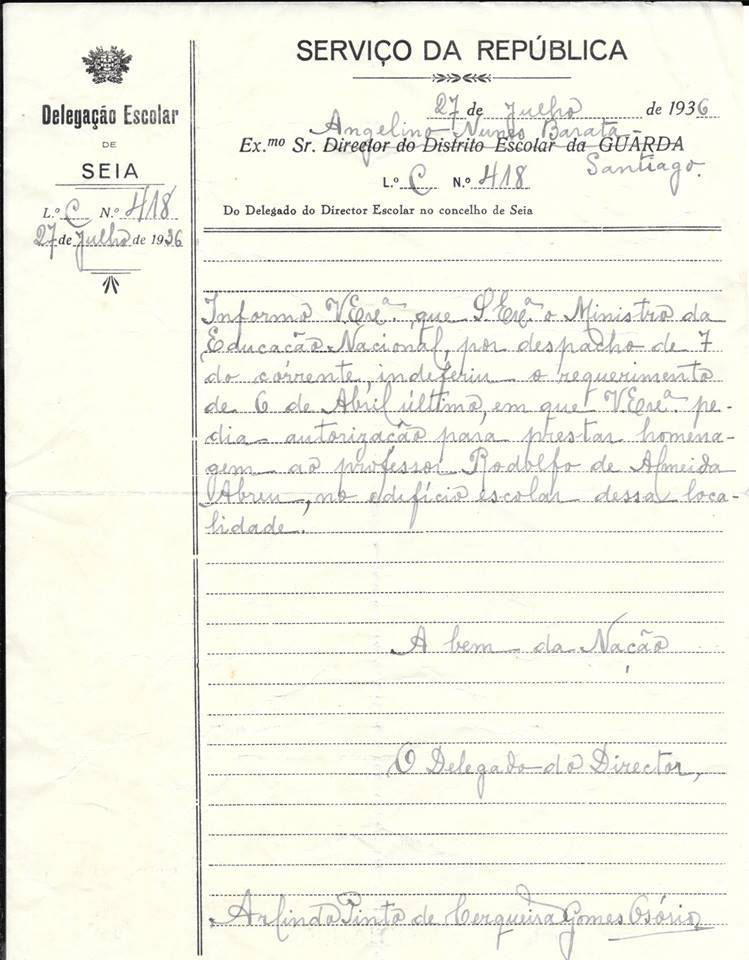 SERVIÇO DA REPÚBLICA
Delegação Escolar
DE
SEIA
L.º C N.º 418
27 de Julho de 1936
27 de Julho de 1936
Angelino Nunes Barata
Ex.mo Sr. Director do Distrito Escolar da GUARDA
Santiago.
L.º C N.º 418
Do Delegado do Director Escolar no concelho de Seia
Informo V. Exª. que S. Exª. o Ministro da
Educação Nacional, por despacho de 7
do córrente, indeferiu o requerimento
de 6 de Abril último, em que V. Exª. pe-
dia autorização para prestar homena-
gem ao professor Rodolfo de Almeida
Abreu, no edifício escolar dessa loca-
lidade.
A bem da Nação
O Delegado do Director,
Arlindo Pinto de Cerqueira Gomes Osório